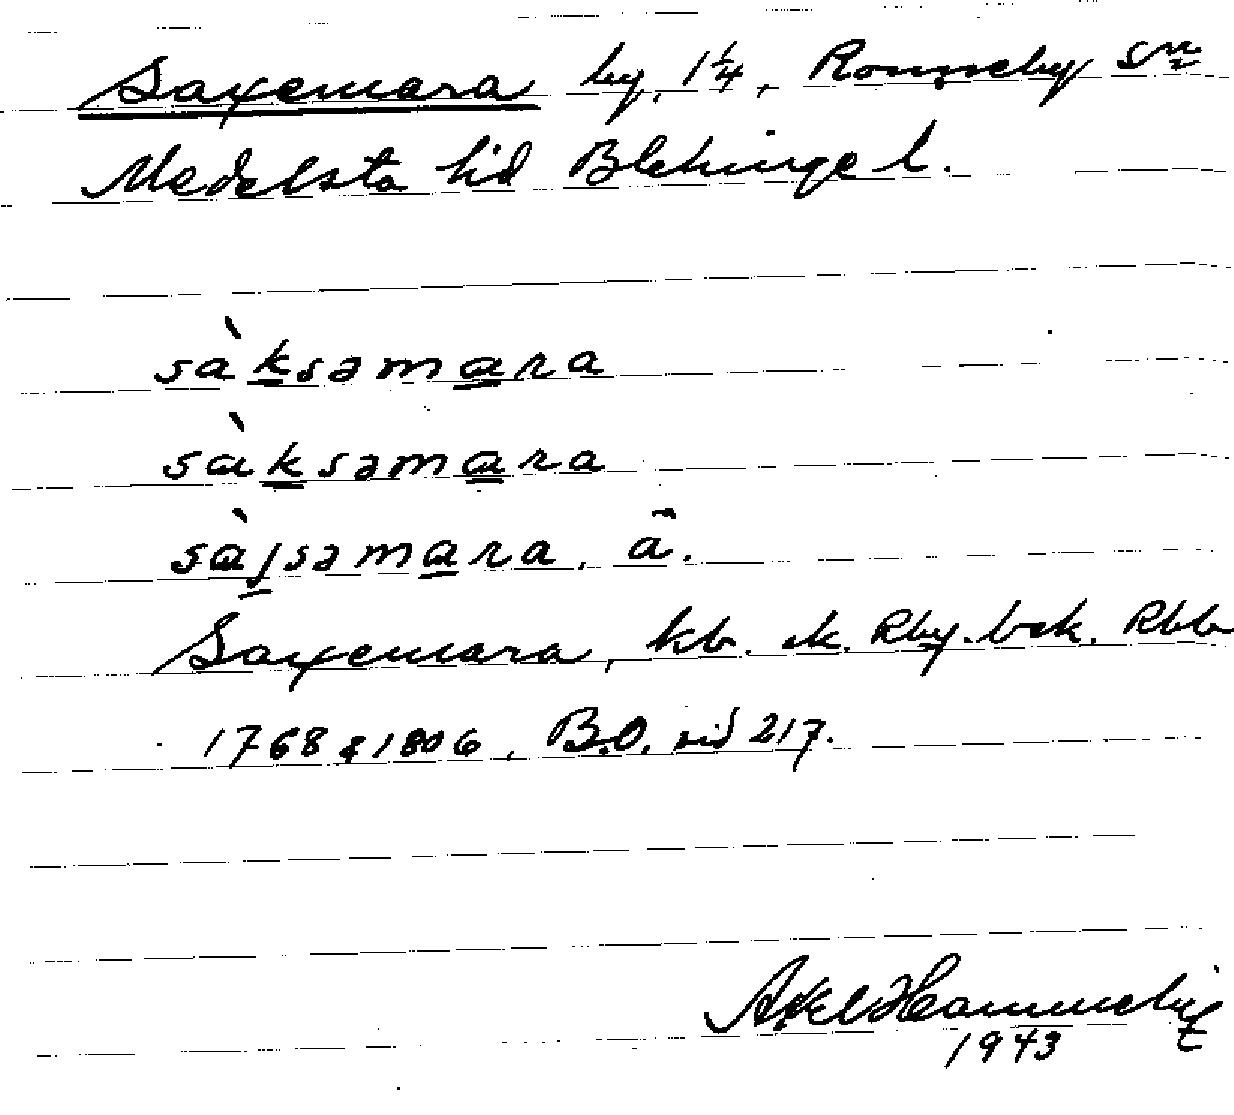 Saxemara by, 1 1/4, Ronneby sn
Medelsta hd Blekinge l.
sàksəmara
sàksəmara
sàjsəmara, ä.
Saxemara, kb. ek. Rby. bck. Rbb
1768 & 1806, B.O. sid 217.
Axel Hammeby
1943